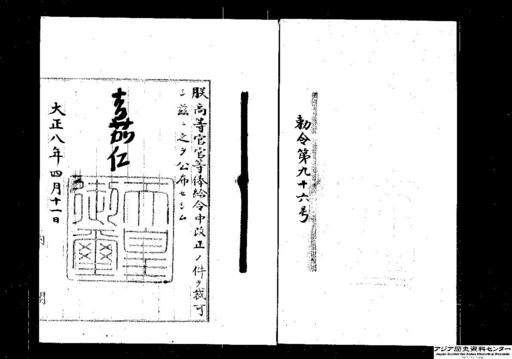 勅令第九十六号
朕高等官官等俸給令中改正ノ件ヲ裁可
シ茲ニ之ヲ公布セシム
嘉仁
天皇御璽
大正八年四月十一日
内閣
アジア歴史資料センター
Japan Center for Asian Historical Records